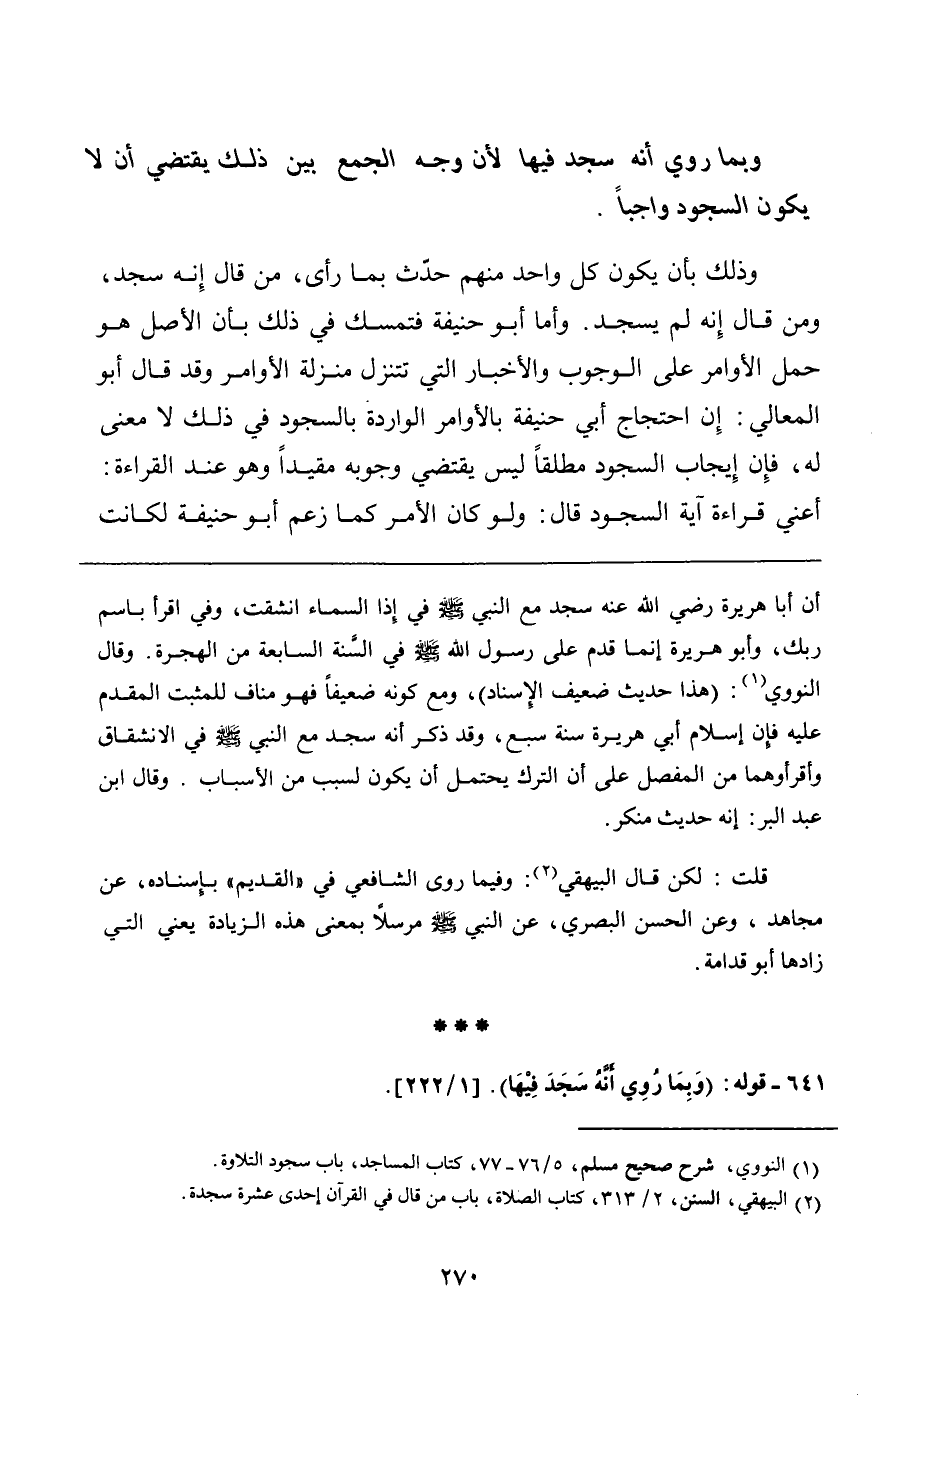 وبما روي أنه سجد فيها لأن وجه الجمع بين ذلك يقتضي أن لا
يكون السجود واجباً .
وذلك بأن يكون كل واحد منهم حدّث بما رأى، من قال إنه سجد،
ومن قال إنه لم يسجد. وأما أبو حنيفة فتمسك في ذلك بأن الأصل هو
حمل الأوامر على الوجوب والأخبار التي تتنزل منزلة الأوامر وقد قال أبو
المعالي: إن احتجاج أبي حنيفة بالأوامر الواردة بالسجود في ذلك لا معنى
له، فإن إيجاب السجود مطلقاً ليس يقتضي وجوبه مقيداً وهو عند القراءة:
أعني قراءة آية السجود قال: ولو كان الأمر كما زعم أبو حنيفة لكانت
أن أبا هريرة رضي الله عنه سجد مع النبي ﷺ في إذا السماء انشقت، وفي اقرأ باسم
ربك، وأبو هريرة إنما قدم على رسول الله ﷺ في السَّنة السابعة من الهجرة. وقال
النووي(١): (هذا حديث ضعيف الإسناد)، ومع كونه ضعيفاً فهو مناف للمثبت المقدم
عليه فإن إسلام أبي هريرة سنة سبع، وقد ذكر أنه سجد مع النبي ﷺ في الانشقاق
وأقرأوهما من المفصل على أن الترك يحتمل أن يكون لسبب من الأسباب . وقال ابن
عبد البر: إنه حديث منكر.
قلت : لكن قال البيهقي(٢): وفيما روى الشافعي في «القديم» بإسناده، عن
مجاهد ، وعن الحسن البصري، عن النبي ﷺ مرسلاً بمعنى هذه الزيادة يعني التي
زادها أبو قدامة.
***
٦٤١ - قوله: (وَبِمَا رُوِي أَنَّهُ سَجَدَ فِيْهَا). [٢٢٢/١].
(١) النووي، شرح صحيح مسلم، ٥/ ٧٦ - ٧٧، كتاب المساجد، باب سجود التلاوة.
(٢) البيهقي، السنن، ٢/ ٣١٣، كتاب الصلاة، باب من قال في القرآن إحدى عشرة سجدة.
٢٧٠